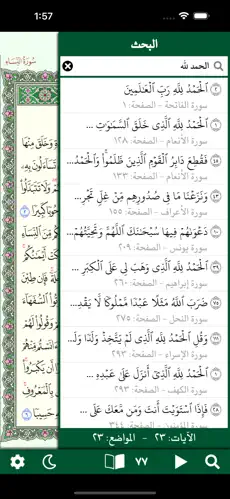 1:57
سُورَةُ النِّسَاءِ
البحث
الحمد لله
ٱلْحَمْدُ لِلَّهِ رَبِّ ٱلْعَـٰلَمِينَ ٢
سورة الفاتحة - الصفحة: ١
ٱلْحَمْدُ لِلَّهِ ٱلَّذِى خَلَقَ ٱلسَّمَـٰوَٰتِ ... ١
سورة الأنعام - الصفحة: ١٢٨
فَقُطِعَ دَابِرُ ٱلْقَوْمِ ٱلَّذِينَ ظَلَمُوا۟ وَٱلْحَمْدُ... ٤٥
سورة الأنعام - الصفحة: ١٣٣
وَنَزَعْنَا مَا فِى صُدُورِهِم مِّنْ غِلٍّ تَجْرِ... ٤٣
سورة الأعراف - الصفحة: ١٥٥
دَعْوَىٰهُمْ فِيهَا سُبْحَـٰنَكَ ٱللَّهُمَّ وَتَحِيَّتُهُمْ... ١٠
سورة يونس - الصفحة: ٢٠٩
ٱلْحَمْدُ لِلَّهِ ٱلَّذِى وَهَبَ لِى عَلَى ٱلْكِبَرِ ... ٣٩
سورة إبراهيم - الصفحة: ٢٦٠
ضَرَبَ ٱللَّهُ مَثَلًا عَبْدًا مَّمْلُوكًا لَّا يَقْدِ... ٧٥
سورة النحل - الصفحة: ٢٧٥
وَقُلِ ٱلْحَمْدُ لِلَّهِ ٱلَّذِى لَمْ يَتَّخِذْ وَلَدًا وَلَ... ١١١
سورة الإسراء - الصفحة: ٢٩٣
ٱلْحَمْدُ لِلَّهِ ٱلَّذِىٓ أَنزَلَ عَلَىٰ عَبْدِهِ ... ١
سورة الكهف - الصفحة: ٢٩٣
فَإِذَا ٱسْتَوَيْتَ أَنتَ وَمَن مَّعَكَ عَلَى ... ٢٨
الآيات: ٢٣ - المواضع: ٢٣
٧٧